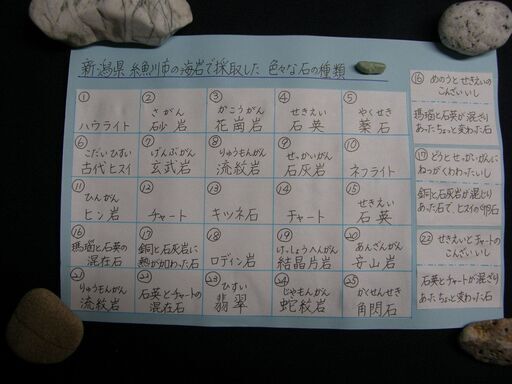 新潟県 糸魚川市の海岩で採取した 色々な石の種類
① ハウライト
② さがん 砂岩
③ かこうがん 花崗岩
④ せきえい 石英
⑤ やくせき 薬石
⑥ こだいひすい 古代ヒスイ
⑦ げんぶがん 玄武岩
⑧ りゅうもんがん 流紋岩
⑨ せっかいがん 石灰岩
⑩ ネフライト
⑪ ひんがん ヒン岩
⑫ チャート
⑬ キツネ石
⑭ チャート
⑮ せきえい 石英
⑯ 瑪瑙と石英の
混在石
⑰ 銅と石灰岩に
熱が加わった石
⑱ ロディン岩
⑲ けっしょうへんがん 結晶片岩
⑳ あんざんがん 安山岩
㉑ りゅうもんがん 流紋岩
㉒ 石英とチャートの
混在石
㉓ ひすい 翡翠
㉔ じゃもんがん 蛇紋岩
㉕ かくせんせき 角閃石
⑯ めのうとせきえいの
こんざいいし
瑪瑙と石英が混ざり
あったちょっと変わった石
⑰ どうとせっかいがんに
ねつがくわわったいし
銅と石灰岩が混じり
あった石で、ヒスイの
㉒ せきえいとチャートの
こんざいいし
石英とチャートが混ざり
あったちょっと変わった石